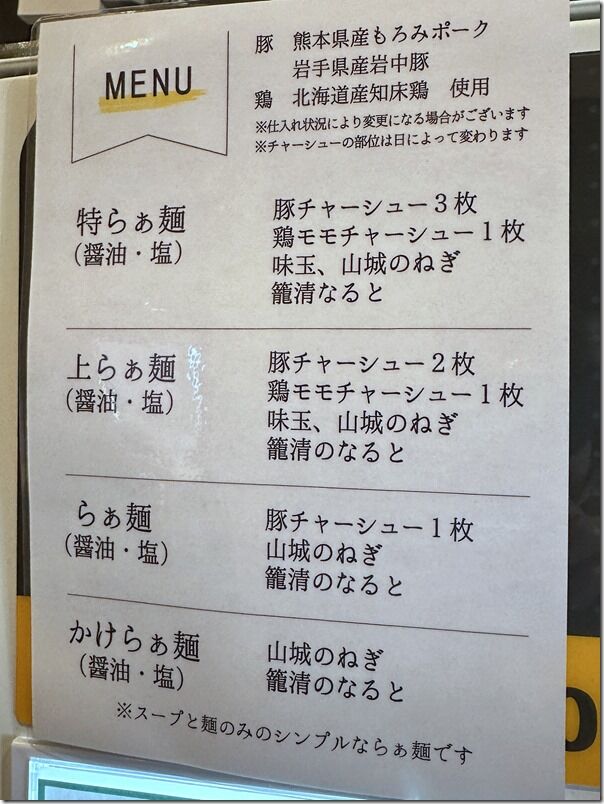 MENU
豚 熊本県産もろみポーク
岩手県産岩中豚
鶏 北海道産知床鶏 使用
※仕入れ状況により変更になる場合がございます
※チャーシューの部位は日によって変わります
特らぁ麺
(醤油・塩)
豚チャーシュー3枚
鶏モモチャーシュー1枚
味玉、山城のねぎ
籠清なると
上らぁ麺
(醤油・塩)
豚チャーシュー2枚
鶏モモチャーシュー1枚
味玉、山城のねぎ
籠清のなると
らぁ麺
(醤油・塩)
豚チャーシュー1枚
山城のねぎ
籠清のなると
かけらぁ麺
(醤油・塩)
山城のねぎ
籠清のなると
※スープと麺のみのシンプルならぁ麺です